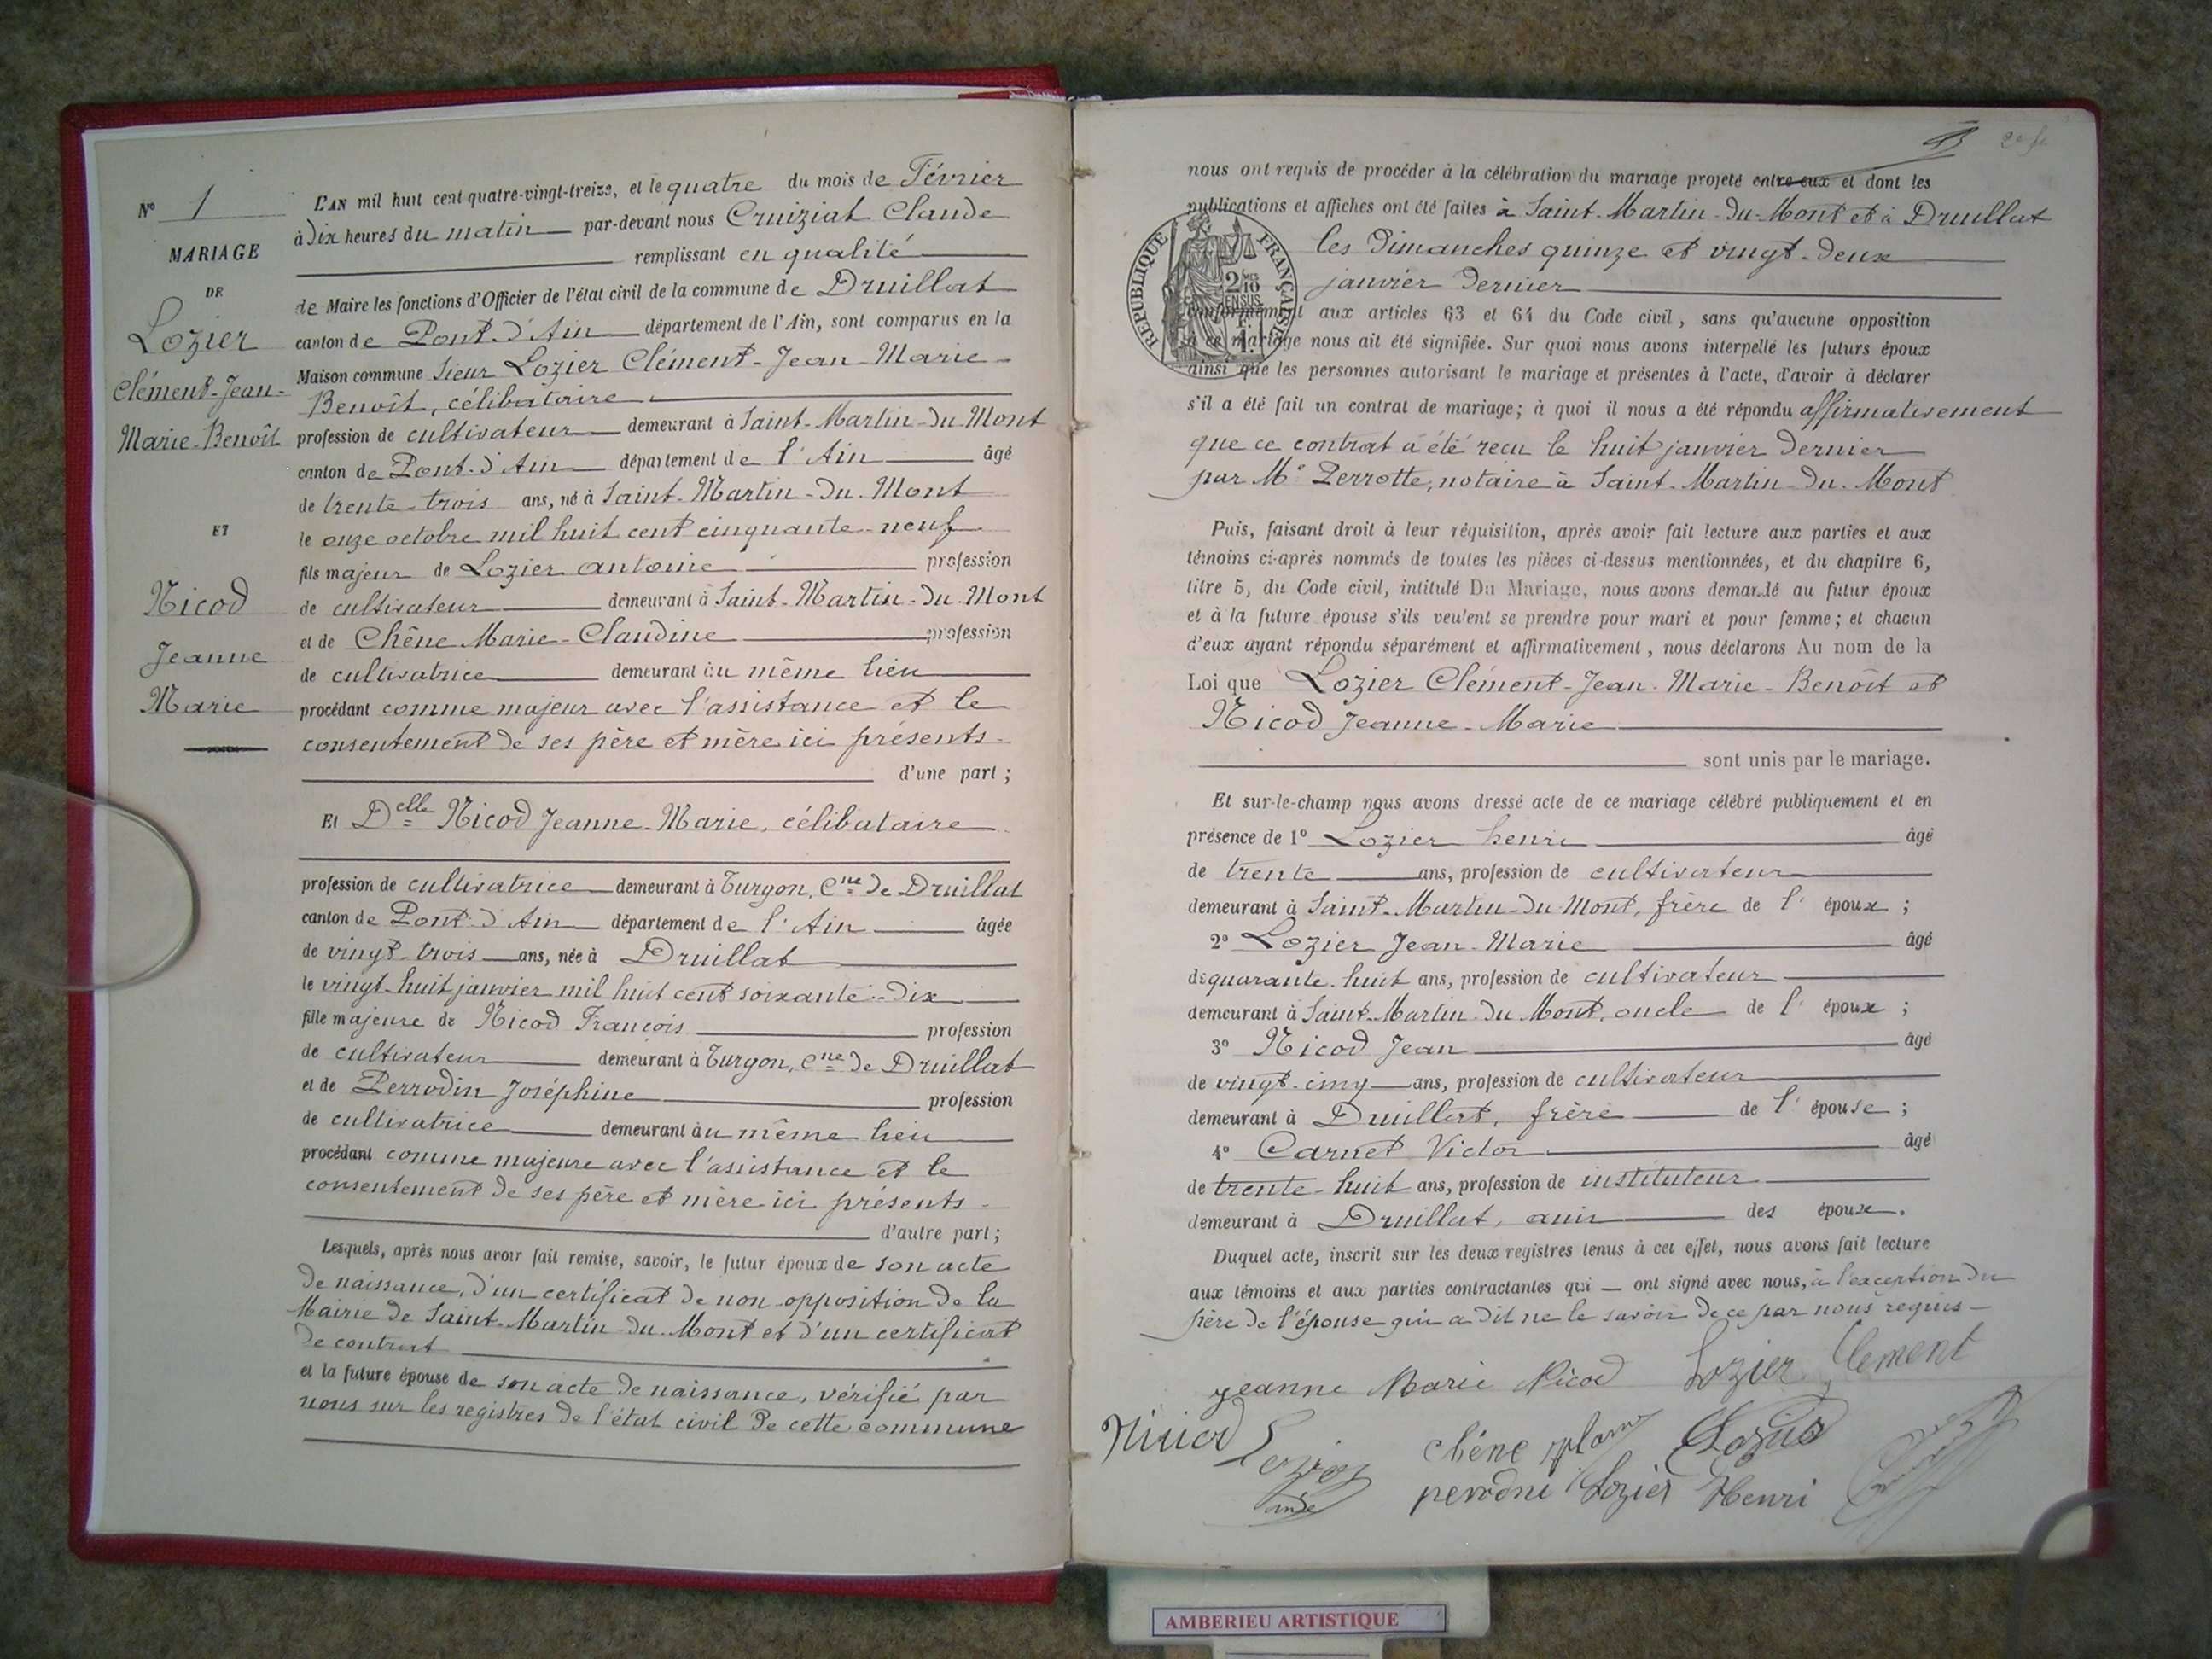 N° 1
MARIAGE
DE
Lozier
Clément-Jean-
Marie-Benoît
ET
Nicod
Jeanne
Marie
L'AN mil huit cent quatre-vingt-treize, et le quatre du mois de Février
à dix heures du matin par-devant nous Cruiziat Claude
remplissant en qualité
de Maire les fonctions d'Officier de l'état civil de la commune de Druillat
canton de Pont-d'Ain département de l'Ain, sont comparus en la
Maison commune sieur Lozier Clément-Jean-Marie-
Benoît, célibataire
profession de cultivateur demeurant à Saint-Martin-du-Mont
canton de Pont-d'Ain département de l'Ain âgé
de trente-trois ans, né à Saint-Martin-du-Mont
le onze octobre mil huit cent cinquante-neuf
fils majeur de Lozier antoine profession
de cultivateur demeurant à Saint-Martin-du-Mont
et de Chêne Marie-Claudine profession
de cultivatrice demeurant au même lieu
procédant comme majeur avec l'assistance et le
consentement de ses père et mère ici présents
d'une part ;
Et Delle Nicod Jeanne-Marie, célibataire
profession de cultivatrice demeurant à Turgon, Cne de Druillat
canton de Pont-d'Ain département de l'Ain âgée
de vingt-trois ans, née à Druillat
le vingt-huit janvier mil huit cent soixante-dix
fille majeure de Nicod François profession
de cultivateur demeurant à Turgon, Cne de Druillat
et de Perrodin Joséphine profession
de cultivatrice demeurant au même lieu
procédant comme majeure avec l'assistance et le
consentement de ses père et mère ici présents
d'autre part ;
Lesquels, après nous avoir fait remise, savoir, le futur époux de son acte
de naissance, d'un certificat de non opposition de la
Mairie de Saint-Martin-du-Mont et d'un certificat
de contrat
et la future épouse de son acte de naissance, vérifié par
nous sur les registres de l'état civil de cette commune
nous ont requis de procéder à la célébration du mariage projeté entre eux et dont les
publications et affiches ont été faites à Saint-Martin-du-Mont et à Druillat
les dimanches quinze et vingt-deux
janvier dernier
RÉPUBLIQUE FRANÇAISE
2/10 EN SUS
conformément aux articles 63 et 64 du Code civil, sans qu'aucune opposition
à ce mariage nous ait été signifiée. Sur quoi nous avons interpellé les futurs époux
ainsi que les personnes autorisant le mariage et présentes à l'acte, d'avoir à déclarer
s'il a été fait un contrat de mariage; à quoi il nous a été répondu affirmativement
que ce contrat a été recu le huit janvier dernier
par Me Perrotte, notaire à Saint-Martin-du-Mont
Puis, faisant droit à leur réquisition, après avoir fait lecture aux parties et aux
témoins ci-après nommés de toutes les pièces ci-dessus mentionnées, et du chapitre 6,
titre 5, du Code civil, intitulé Du Mariage, nous avons demandé au futur époux
et à la future épouse s'ils veulent se prendre pour mari et pour femme; et chacun
d'eux ayant répondu séparément et affirmativement, nous déclarons Au nom de la
Loi que Lozier Clément-Jean-Marie-Benoît et
Nicod Jeanne-Marie
sont unis par le mariage.
Et sur-le-champ nous avons dressé acte de ce mariage célébré publiquement et en
présence de 1° Lozier henri âgé
de trente ans, profession de cultivateur
demeurant à Saint-Martin-du-Mont, frère de l'époux ;
2° Lozier Jean-Marie âgé
de quarante-huit ans, profession de cultivateur
demeurant à Saint-Martin-du-Mont, oncle de l'époux ;
3° Nicod Jean âgé
de vingt-cinq ans, profession de cultivateur
demeurant à Druillat, frère de l'épouse ;
4° Carnet Victor âgé
de trente-huit ans, profession de instituteur
demeurant à Druillat, ami des époux.
Duquel acte, inscrit sur les deux registres tenus à cet effet, nous avons fait lecture
aux témoins et aux parties contractantes qui — ont signé avec nous, à l'exception du
père de l'épouse qui a dit ne le savoir de ce par nous requis
Jeanne Marie Nicod Lozier Clément
Lozier
chêne
Lozier Henri
AMBERIEU ARTISTIQUE